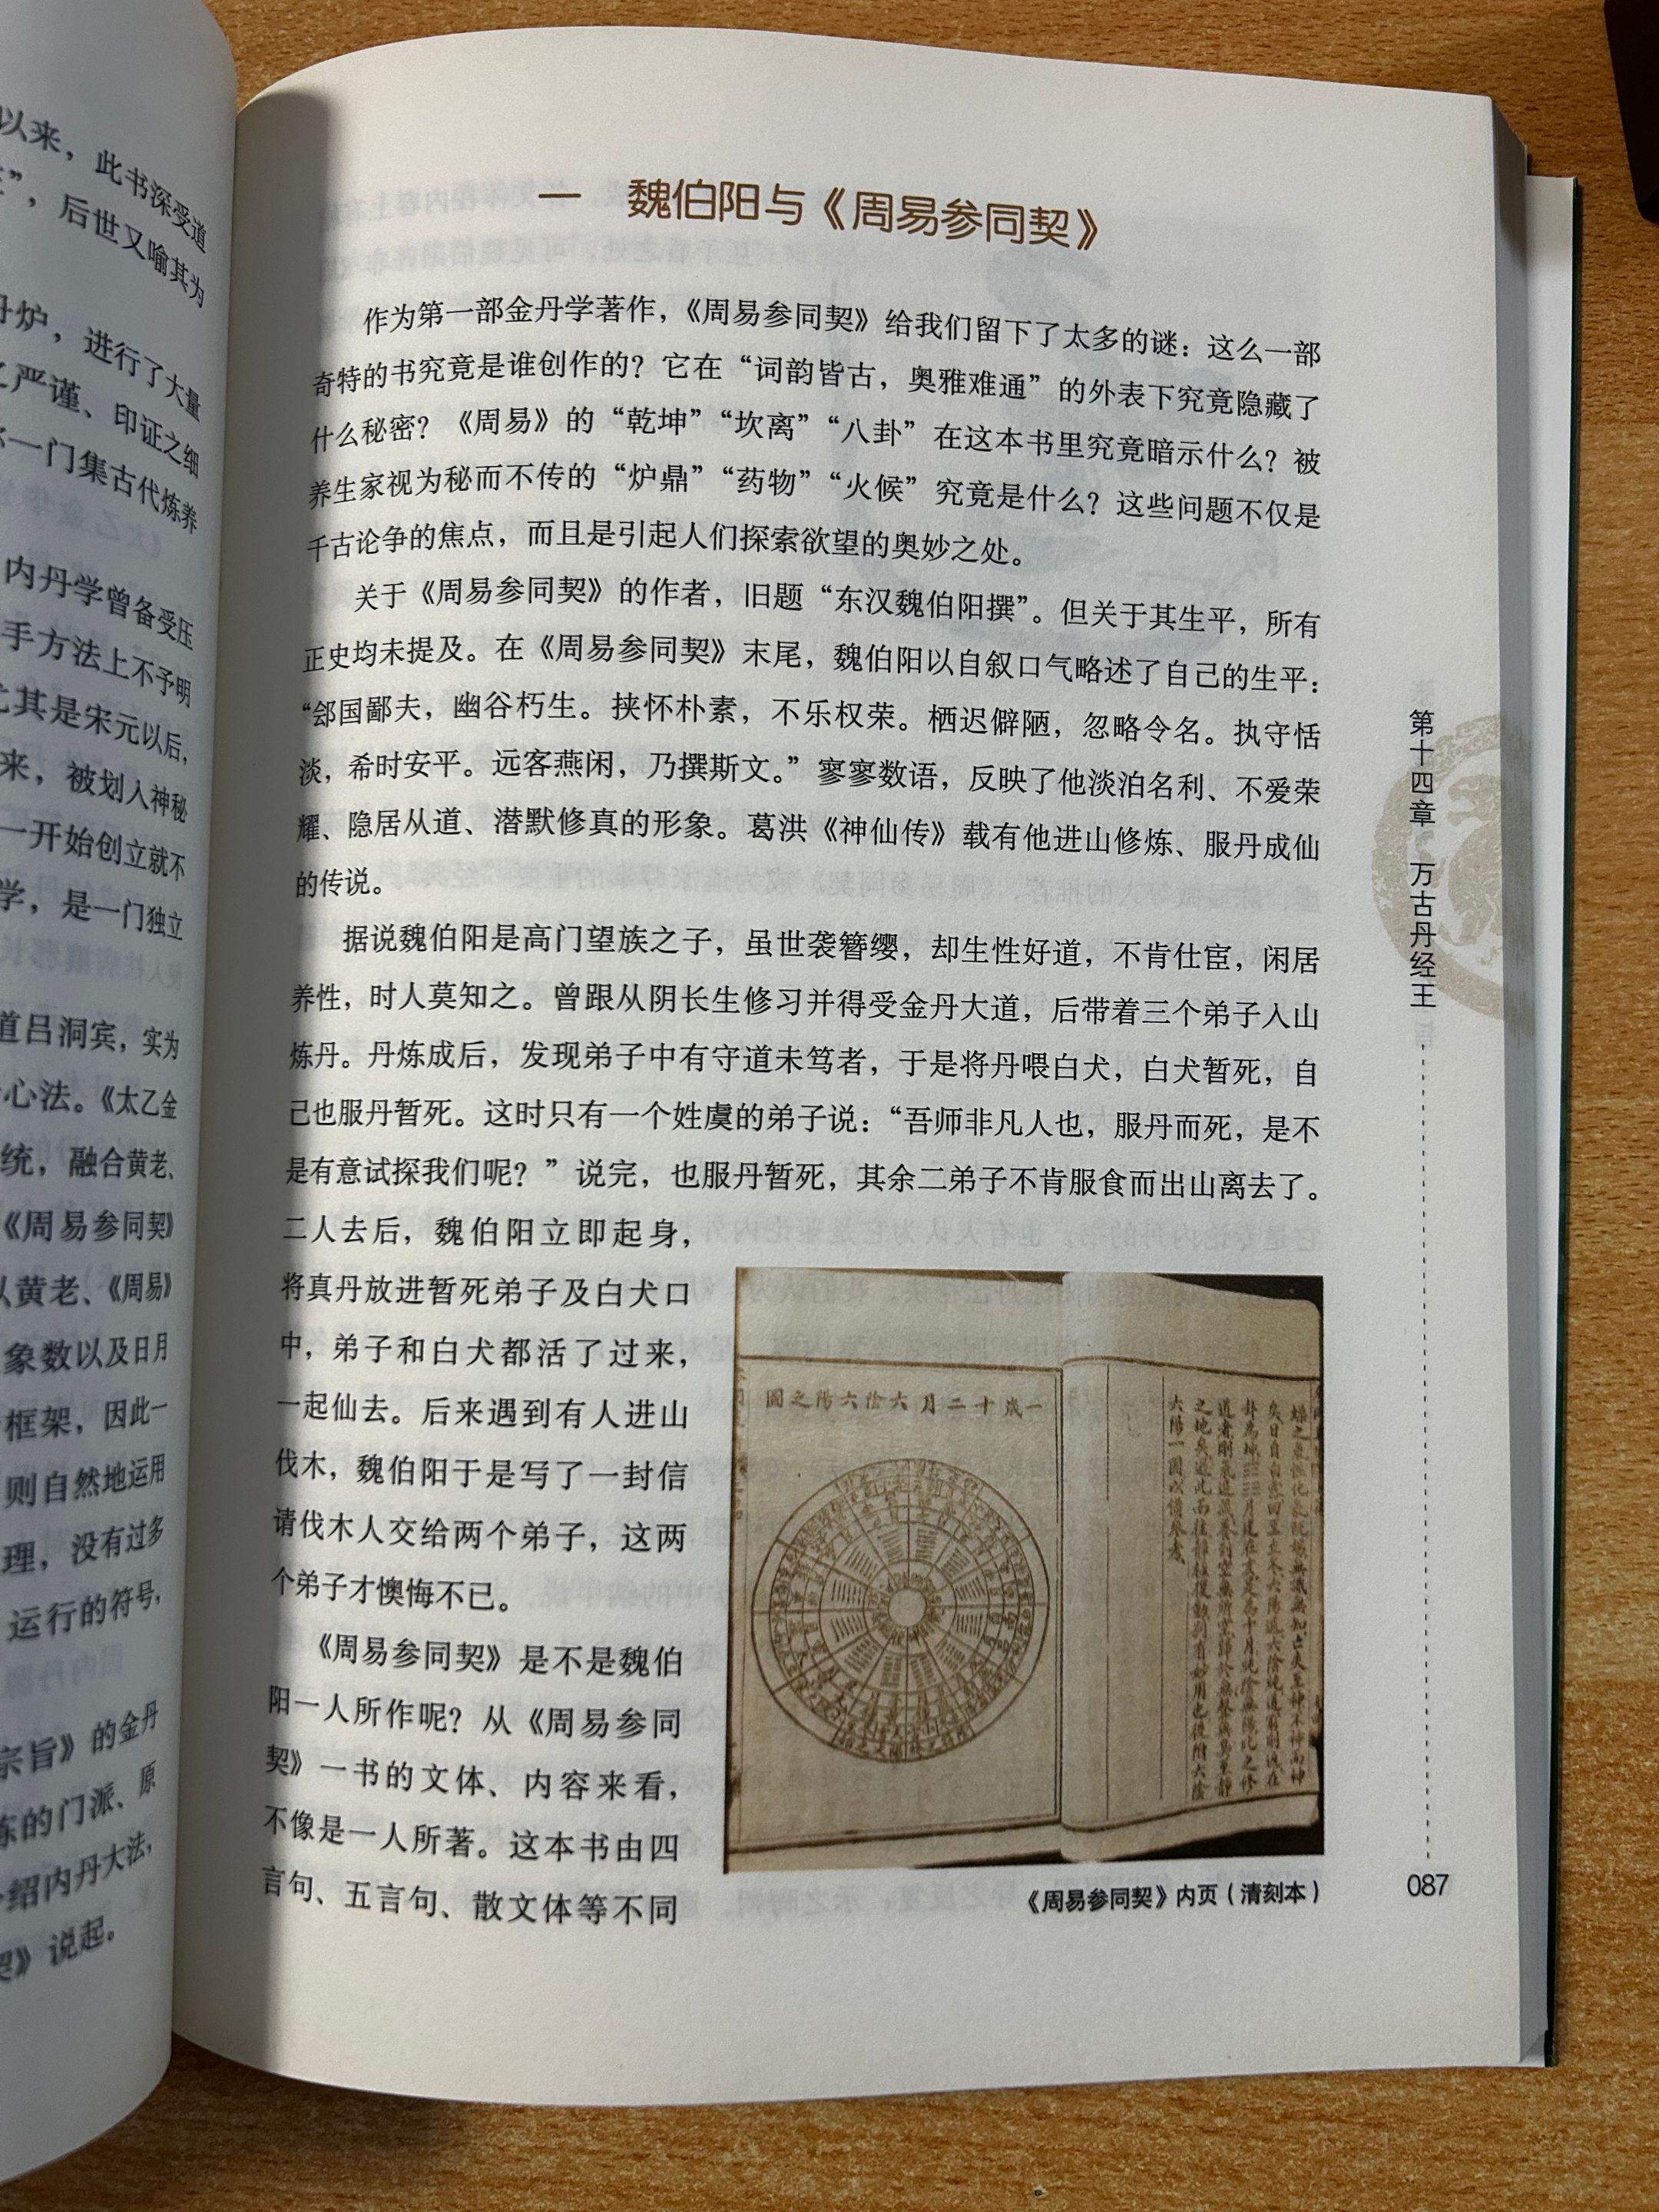 以来，此书深受道
”，后世又喻其为
丹炉，进行了大量
之严谨、印证之细
一门集古代炼养
内丹学曾备受压
手方法上不予明
尤其是宋元以后，
来，被划入神秘
一开始创立就不
学，是一门独立
道吕洞宾，实为
心法。《太乙金
统，融合黄老、
《周易参同契》
以黄老、《周易》
象数以及日月
框架，因此一
则自然地运用
理，没有过多
运行的符号，
宗旨》的金丹
炼的门派、原
绍内丹大法，
契》说起。
一 魏伯阳与《周易参同契》
作为第一部金丹学著作，《周易参同契》给我们留下了太多的谜：这么一部
奇特的书究竟是谁创作的？它在“词韵皆古，奥雅难通”的外表下究竟隐藏了
什么秘密？《周易》的“乾坤”“坎离”“八卦”在这本书里究竟暗示什么？被
养生家视为秘而不传的“炉鼎”“药物”“火候”究竟是什么？这些问题不仅是
千古论争的焦点，而且是引起人们探索欲望的奥妙之处。
关于《周易参同契》的作者，旧题“东汉魏伯阳撰”。但关于其生平，所有
正史均未提及。在《周易参同契》末尾，魏伯阳以自叙口气略述了自己的生平：
“郐国鄙夫，幽谷朽生。挟怀朴素，不乐权荣。栖迟僻陋，忽略令名。执守恬
淡，希时安平。远客燕闲，乃撰斯文。”寥寥数语，反映了他淡泊名利、不爱荣
耀、隐居从道、潜默修真的形象。葛洪《神仙传》载有他进山修炼、服丹成仙
的传说。
据说魏伯阳是高门望族之子，虽世袭簪缨，却生性好道，不肯仕宦，闲居
养性，时人莫知之。曾跟从阴长生修习并得受金丹大道，后带着三个弟子入山
炼丹。丹炼成后，发现弟子中有守道未笃者，于是将丹喂白犬，白犬暂死，自
己也服丹暂死。这时只有一个姓虞的弟子说：“吾师非凡人也，服丹而死，是不
是有意试探我们呢？”说完，也服丹暂死，其余二弟子不肯服食而出山离去了。
二人去后，魏伯阳立即起身，
将真丹放进暂死弟子及白犬口
中，弟子和白犬都活了过来，
一起仙去。后来遇到有人进山
伐木，魏伯阳于是写了一封信
请伐木人交给两个弟子，这两
个弟子才懊悔不已。
《周易参同契》是不是魏伯
阳一人所作呢？从《周易参同
契》一书的文体、内容来看，
不像是一人所著。这本书由四
言句、五言句、散文体等不同
一歲十二月六陰六陽之圖
六陽一圖以備參考
《周易参同契》内页（清刻本）
第十四章 万古丹经王
087